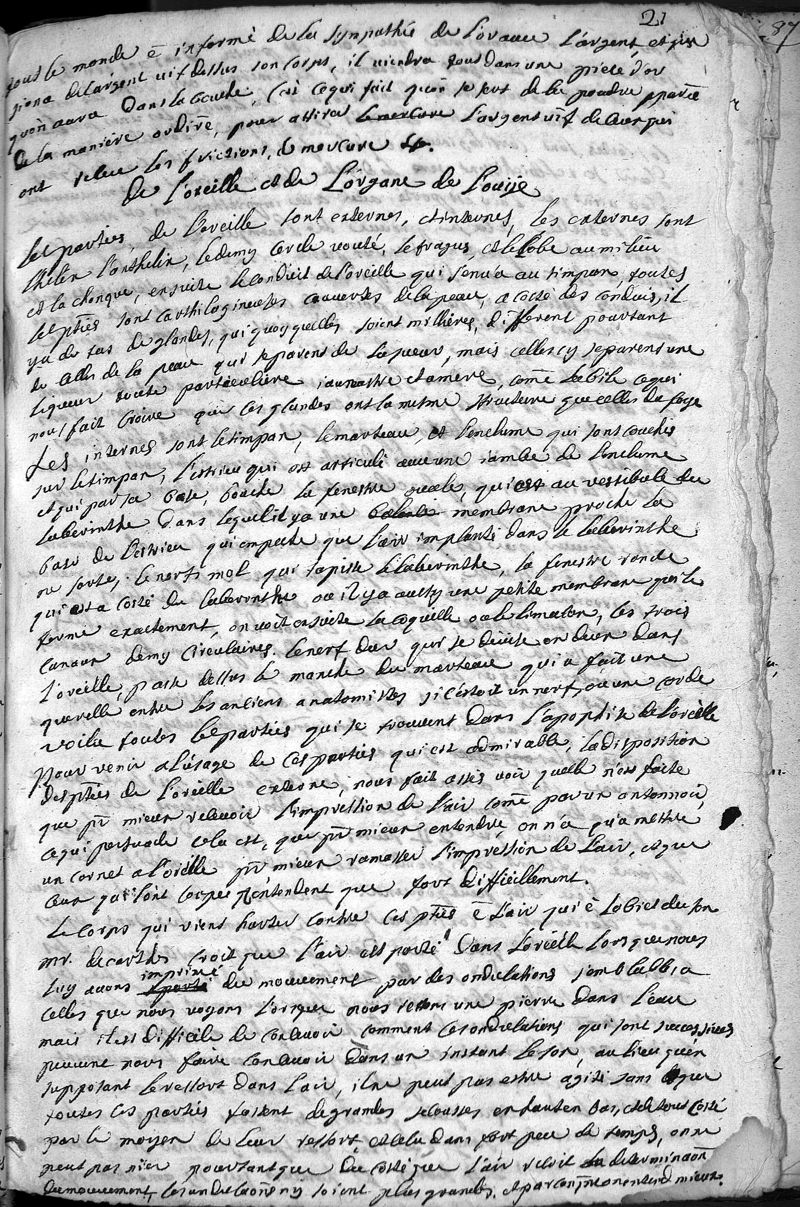 21 87
tout le monde ē informé de la sympathie de l'or avec l'argent, et si
de l'argent vif dessus son corps, il viendra tout dans une piece d'or
qu'on aura dans la bouche, c'est ce qui fait qu'on se sert de la poudre pparée
de la maniere ordire, pour attirer le mercure l'argent vif de ceux qui
ont receu les frictions de mercure &c.
De L'oreille et de L'organe de L'ouije
les parties, de l'oreille sont externes, et internes, les externes sont
l'helix l'anthelix, le demy cercle vouté, le tragus, et le lobe au milieu
est la chonque, ensuite le conduit de l'oreille qui s'en va au timpan, toutes
les pties sont carthilogineuses couvertes de la peau, a costé des conduis, il
y a de tas de glandes, qui quoy quelles soient milliéres, different pourtant
de celles de la peau qui separent de la sueur, mais celles cy separent une
liqueur toute particuliere jaunastre et amere, come la bile ce qui
nous fait croire que ces glandes ont la mesme structure que celles du foye
Les internes sont le timpan, le marteau, et l'enclume qui sont couchés
sur le timpan, l'estrieu qui est articulé avec une jambe de l'enclume
et qui par sa base, bouche la fenestre ovale, qui est au vestibule du
laberinthe dans lequel il y a une membrane proche la
base de l'estrieu qui empeche que l'air implanté dans le laberinthe
ne sorte, le nerf mol qui tapisse le laberinthe, la fenestre ronde
qui est a costé du laberinthe ou il y a aussy une petite membrane qui le
ferme exactement, on voit ensuite la coquille ou le limacon, les trois
canaux demy circulaires, le nerf dur qui se divise en deux dans
l'oreille, passe dessus le manche du marteau qui a fait une
querelle entre les anciens anatomistes si c'estoit un nerf, ou une corde
voila toutes les parties qui se trouvent dans l'apophise de l'oreille
Pour venir a l'usage de ces parties qui est admirable, la disposition
des pties de l'oreille externe, nous fait asses voir quelle n'est faite
que pr mieux recevoir l'impression de l'air come par un antonnoir,
ce qui persuade cela est, que pr mieux entendre, on n'a qu'a mettre
un cornet a l'oreille pr mieux ramasser l'impression de l'air, et que
ceux qui l'ont coupé n'entendent que fort difficillement.
Le corps qui vient hurter contre ces pties ē l'air qui ē l'obiet du son
mr. decartes croit que l'air est porté dans l'oreille lorsque nous
luy avons imprimé du mouvement par des ondulations semblables a
celles que nous voyons lorsque nous jettons une pierre dans l'eau
mais il est difficile de concevoir comment ces ondulations qui sont successives
peuvent nous faire concevoir dans un instant le son, au lieu qu'en
supposant le ressort dans l'air, il ne peut pas estre agité sans que
toutes ces parties fassent de grandes secousses en haut en bas, et de tous costé
par le moyen de leur ressort, et cela dans fort peu de temps, on ne
peut pas nier pourtant que du costé que l'air recoit la determinaon
du mouvement, les ondulaons n'y soient plus grandes, et par consequent on entend mieux.